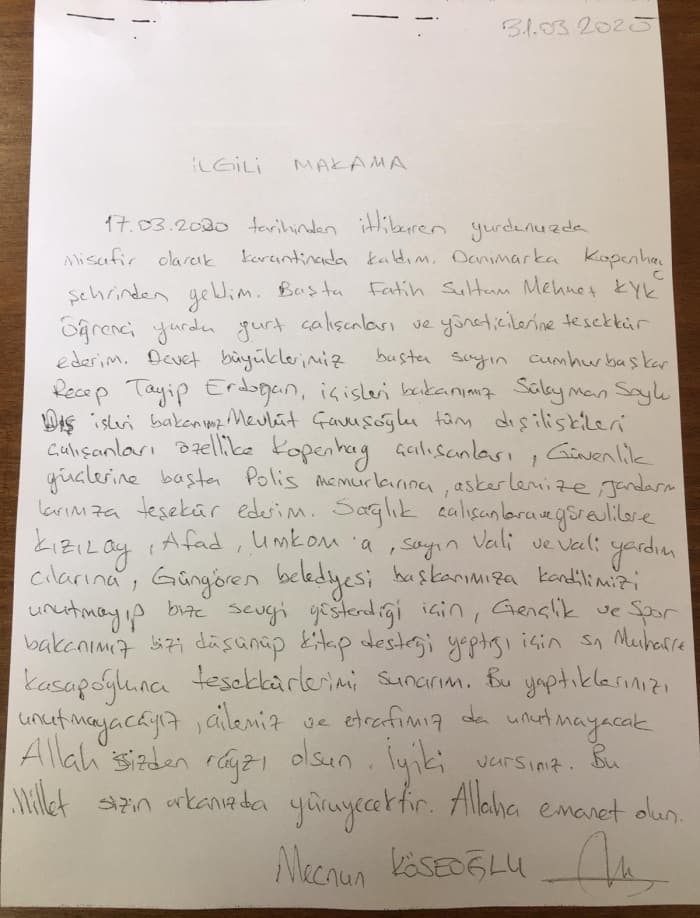 31.03.2020
İLGİLİ MAKAMA
17.03.2020 tarihinden itibaren yurdunuzda
misafir olarak karantinada kaldım. Danimarka Kopenhag
şehrinden geldim. Başta Fatih Sultan Mehmet KYK
Öğrenci yurdu yurt çalışanları ve yöneticilerine teşekkür
ederim. Devet büyüklerimiz başta sayın cumhurbaşkar
Recep Tayip Erdogan, içişleri bakanımız Süleyman Soylu
Dış işleri bakanımız Mevlüt Çavuşoğlu tüm dışilişkileri
çalışanları özellike Kopenhag çalışanları, Güvenlik
güçlerine başta Polis memurlarına, askerlemize, jandarm
larımıza teşekür ederim. Sağlık çalışanlara ve görevlilere
KIZILAY, Afad, Umkom'a, sayın Vali ve vali yardım
cılarına, Güngören beledyesi başkanımıza kandilimizi
unutmayıp bize sevgi gösterdiği için, Gençlik ve Spor
bakanımız bizi düşünüp kitap desteği yaptığı için sn Muharre
Kasapoğluna teşekkürlerimi sunarım. Bu yaptıklarınızı
unutmayacağız, ailemiz ve etrafımız da unutmayacak
Allah sizden rayzı olsun. İyiki varsınız. Bu
Millet sizin arkanızda yürüyecektir. Allaha emanet olun.
Mecnun KÖSEOĞLU